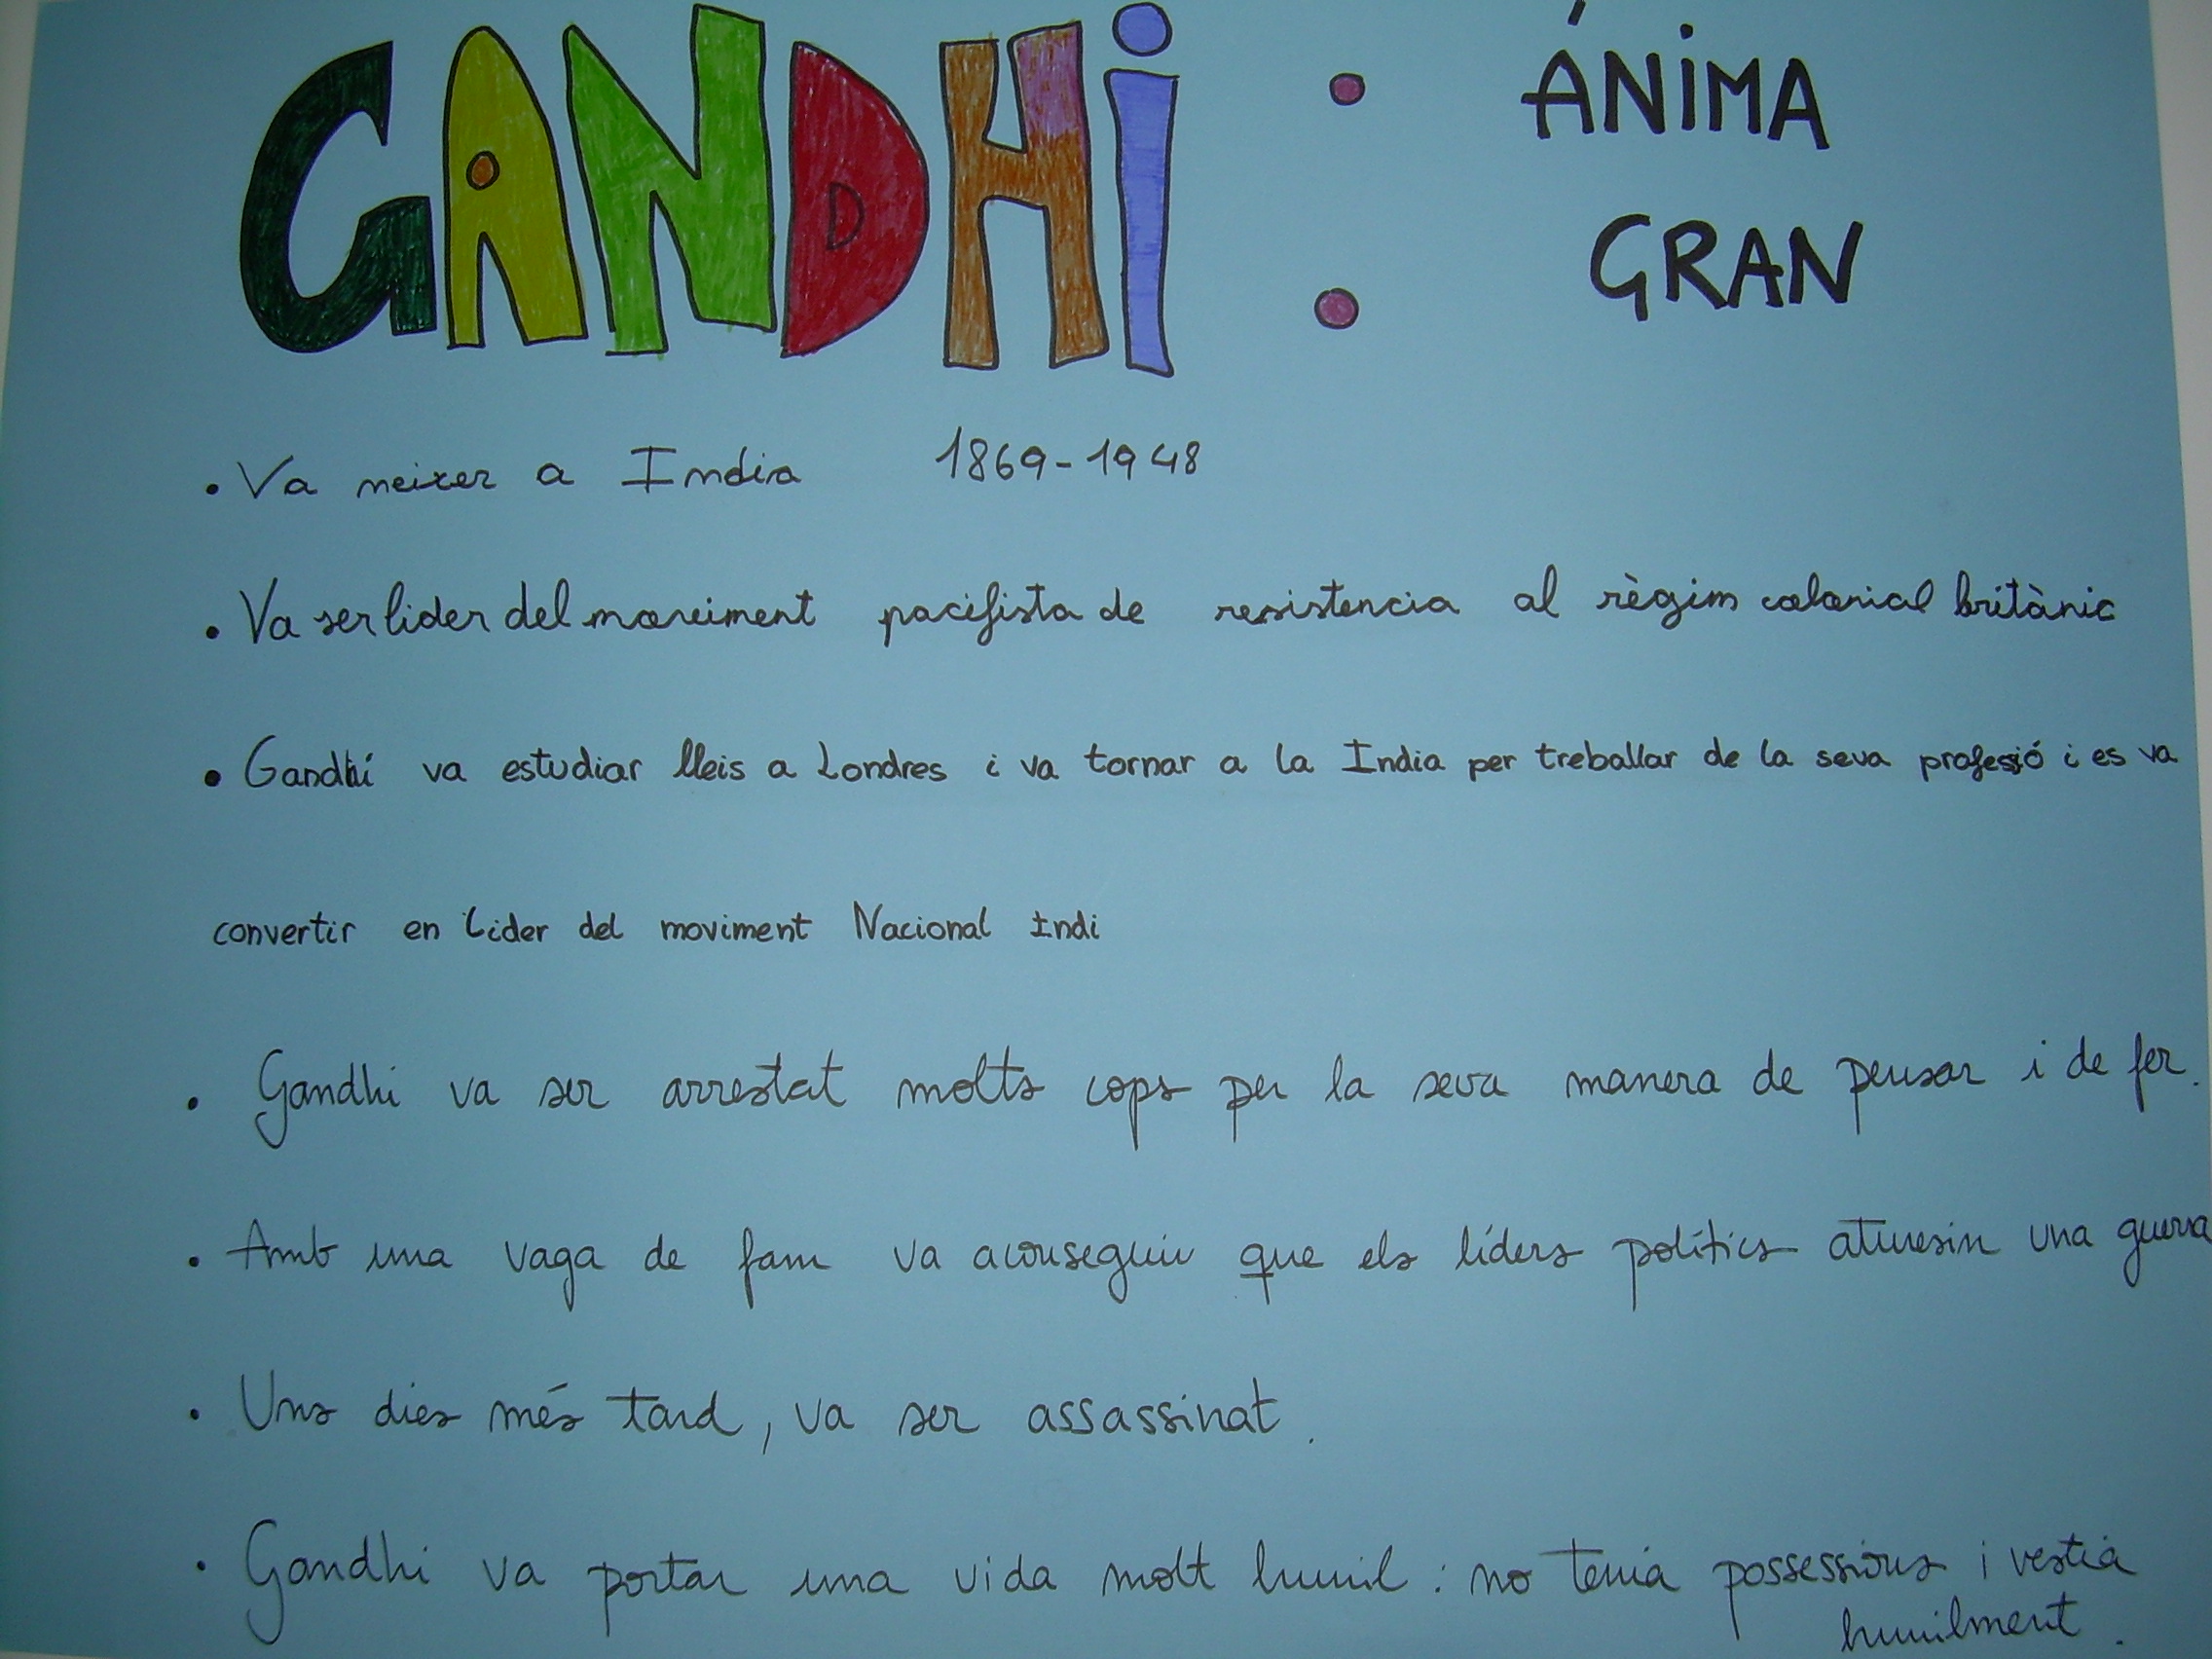 GANDHi : ÁNiMA
GRAN
• Va neixer a India 1869-1948
• Va ser lider del moviment pacifista de resistencia al règim colonial britànic
• Gandhi va estudiar lleis a Londres i va tornar a la India per treballar de la seva professió i es va
convertir en lider del moviment Nacional Indi
• Gandhi va ser arrestat molts cops per la seva manera de pensar i de fer.
• Amb una vaga de fam va aconseguir que els líders polítics aturesin una guerra
• Uns dies més tard, va ser assassinat.
• Gandhi va portar una vida molt humil: no tenia possessions i vestia
humilment.